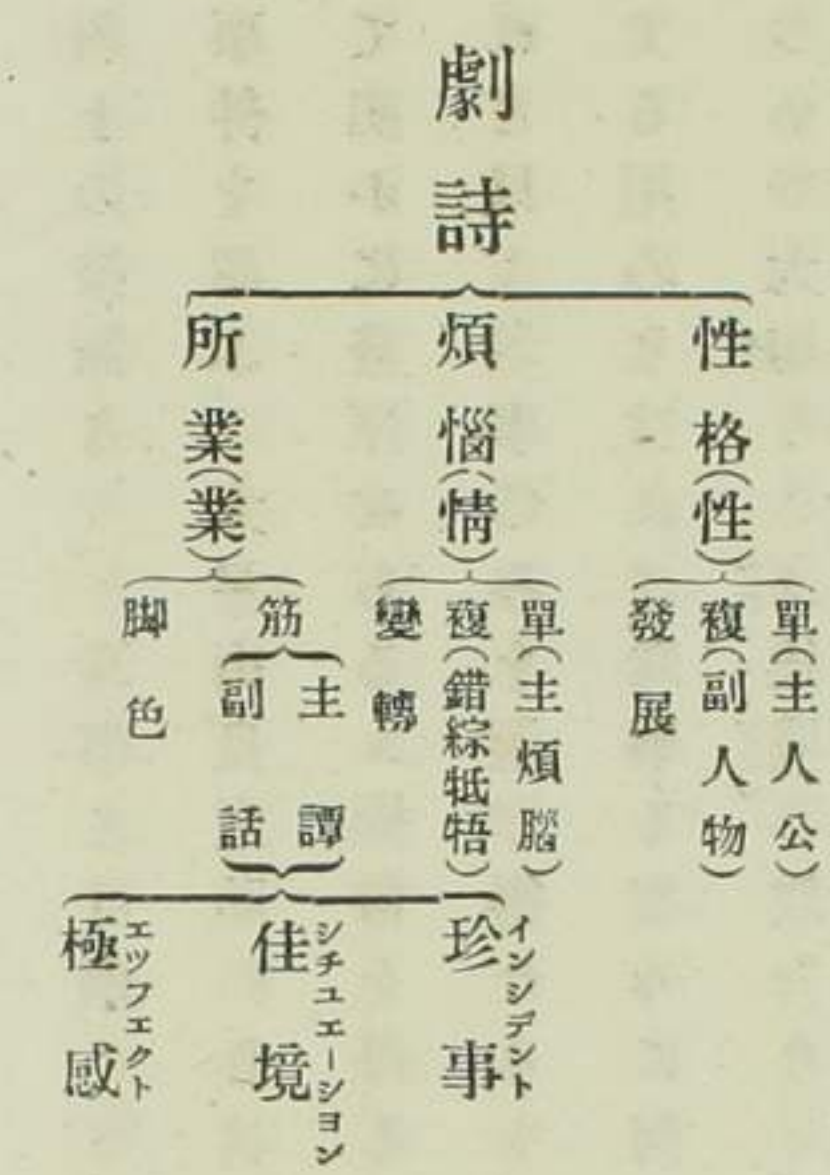 劇詩
性格(性)
單(主人公)
複(副人物)
發展
煩惱(情)
單(主煩腦)
複(錯綜牴牾)
變轉
所業(業)
筋
主譚
副話
珍事
インシデント
佳境
シチユエーシヨン
極感
エツフエクト
脚色